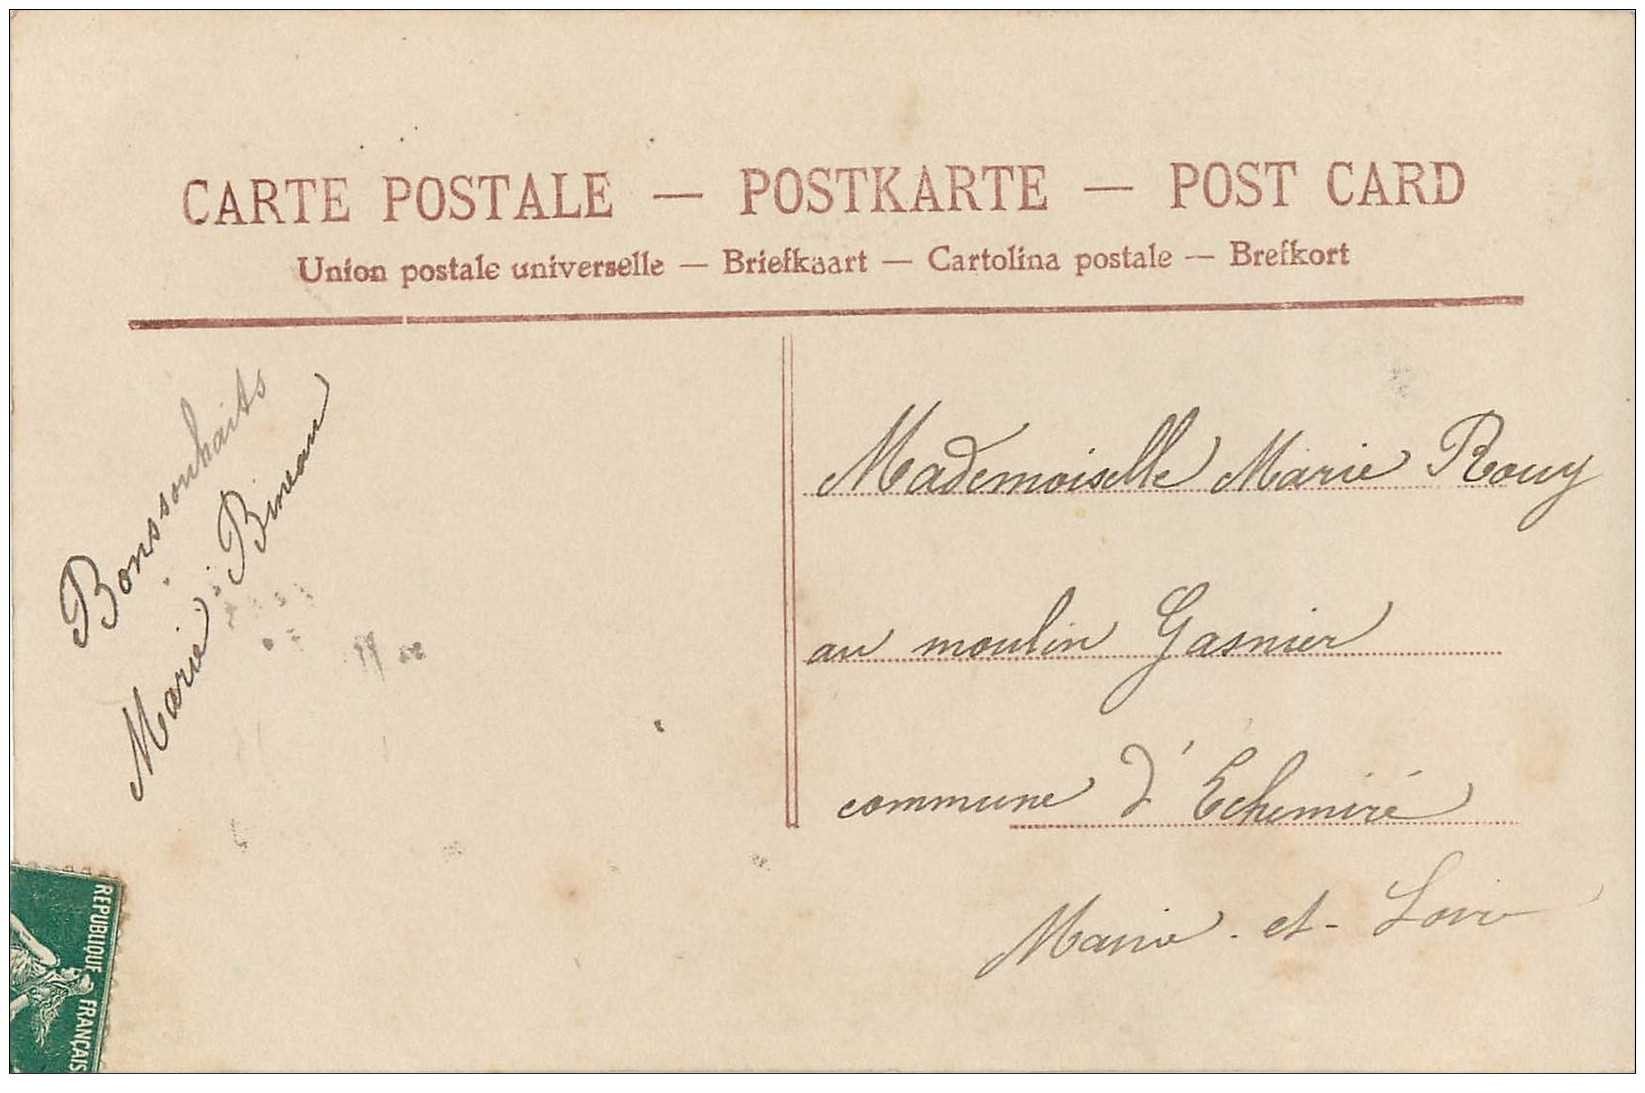 CARTE POSTALE — POSTKARTE — POST CARD
Union postale universelle — Briefkaart — Cartolina postale — Brefkort
Bons souhaits
Marie Bineau
Mademoiselle Marie Rouy
au moulin Gasnier
commune d'Echemiré
Maine-et-Loire
REPUBLIQUE FRANÇAIS